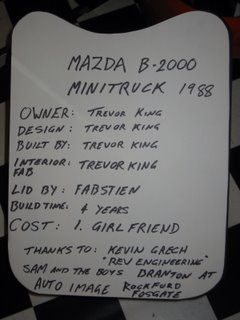 MAZDA B-2000
MINITRUCK 1988
OWNER: TREVOR KING
DESIGN: TREVOR KING
BUILT BY: TREVOR KING
INTERIOR: TREVOR KING
FAB
LID BY: FABSTIEN
BUILD TIME: 4 YEARS
COST: 1. GIRLFRIEND
THANKS TO: KEVIN GRECH
"REV ENGINEERING"
SAM AND THE BOYS BRANTON AT
AUTO IMAGE ROCKFURD
FOSGATE